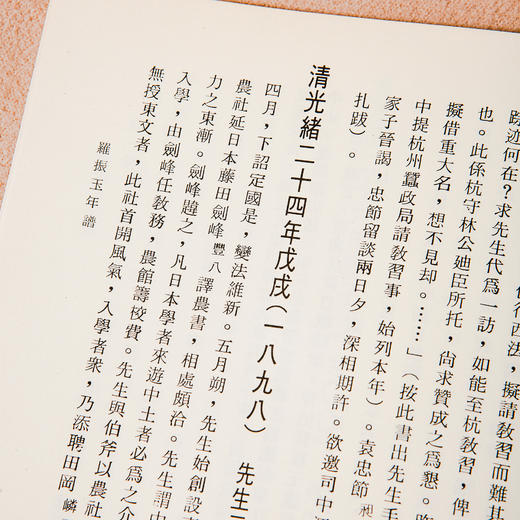 仿行西法，擬請教習而難
踪迹何在？求先生代爲一訪，如能至杭教習，俾
也。此係杭守林公迪臣所托，尙求贊成之爲懇。
擬借重大名，想不見却。……」（按此書出先生手
中提杭州蠶政局請教習事，始列本年）。袁忠節昶
家子晉謁，忠節留談兩日夕，深相期許。欲邀司中
扎跋）。
清光緒二十四年戊戌（一八九八）　先生
四月，下詔定國是，變法維新。五月朔，先生始創設
農社延日本藤田劍峰豐八譯農書，相處頗洽。先生謂中
力之東漸。劍峰韙之，凡日本學者來遊中土者必爲之介
入學，由劍峰任教務，農館籌校費。先生與伯斧以農社
無授東文者，此社首開風氣，入學者衆，乃添聘田岡嶙
羅振玉年譜